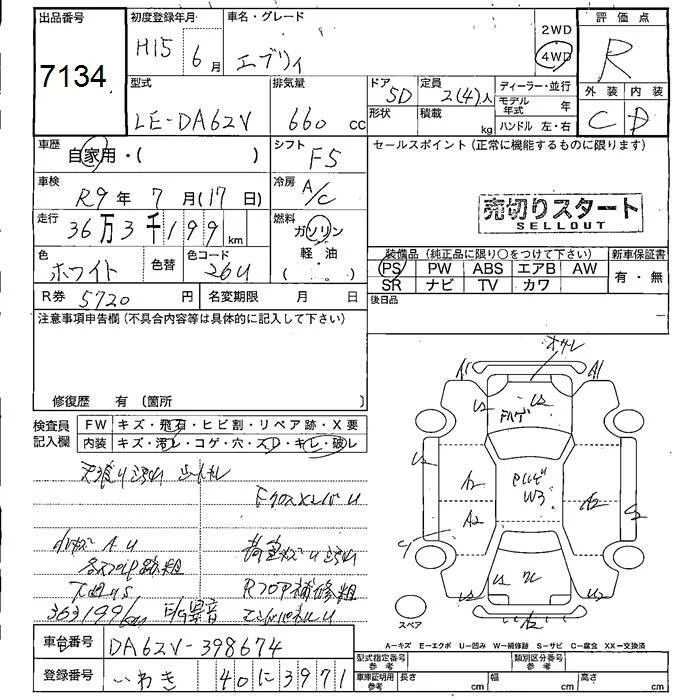 出品番号
7134
初度登録年月
H15 6月
車名・グレード
エブリィ
2WD
4WD
評価点
R
外装 内装
C D
型式
LE-DA62V
排気量
660 cc
ドア 5D
形状
定員 2(4)人
積載 kg
ディーラー・並行
モデル年式 年
ハンドル 左・右
車歴
自家用・( )
シフト
F5
セールスポイント (正常に機能するものに限ります)
車検
R9年 7月(17日)
冷房 A/C
走行
36万3千199km
燃料
ガソリン
軽油
( )
売切りスタート
SELLOUT
色
ホワイト
色替
色コード
26U
装備品 (純正品に限り○をつけて下さい)
新車保証書
PS PW ABS エアB AW
SR ナビ TV カワ
有・無
R券 5720円
名変期限 月 日
後日品
注意事項申告欄 (不具合内容等は具体的に記入して下さい)
修復歴 有 〔箇所 〕
検査員記入欄
FW キズ・飛石・ヒビ割・リペア跡・X要
内装 キズ・汚レ・コゲ・穴・スレ・キレ・破レ
363199km E/G異音
車台番号
DA62V-398674
登録番号
いわき 40 に 3971
A1 A1
U2 U2
Fハゲ
U2
A2 A2 A2
W3
U2 U2
A2
スペア
A-キズ E-エクボ U-凹み W-補修跡 S-サビ C-腐食 XX-交換済
型式指定番号 参考
類別区分番号 参考
車庫証明用 参考
長さ cm
幅 cm
高さ cm